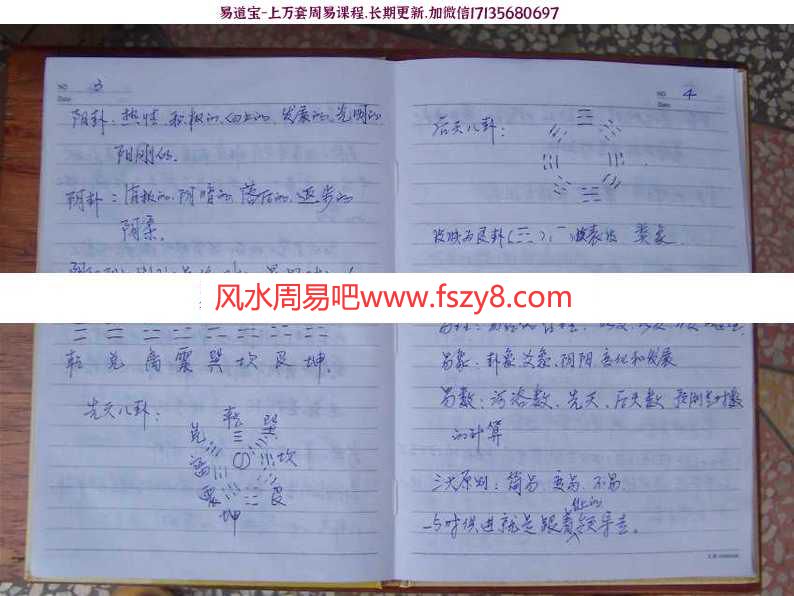 易道宝-上万套周易课程.长期更新.加微信17135680697
NO 3
Date
阳卦：热情.积极的.向上的.发展的.光明的
阳刚的.
阴卦：消极的.阴暗的.落后的.退步的
阴柔.
风水周易吧www.fszy8.com
乾 兑 离 震 巽 坎 艮 坤.
先天八卦：
乾
兑 巽
离 坎
震 艮
坤
NO 4
Date
后天八卦：
类象.
易象：卦象爻象.阴阳.变化和发展
易数：河洛数.先天.后天数
的计算
三大原则：简易.变易.不易.
与时俱进就是跟着领导走。